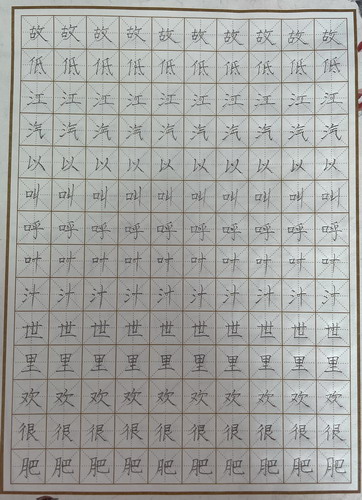 故故故故故故故故故故
低低低低低低低低低低
江江江江江江江江江江
汽汽汽汽汽汽汽汽汽汽
以以以以以以以以以以
叫叫叫叫叫叫叫叫叫叫
呼呼呼呼呼呼呼呼呼呼
叶叶叶叶叶叶叶叶叶叶
汁汁汁汁汁汁汁汁汁汁
世世世世世世世世世世
里里里里里里里里里里
欢欢欢欢欢欢欢欢欢欢
很很很很很很很很很很
肥肥肥肥肥肥肥肥肥肥